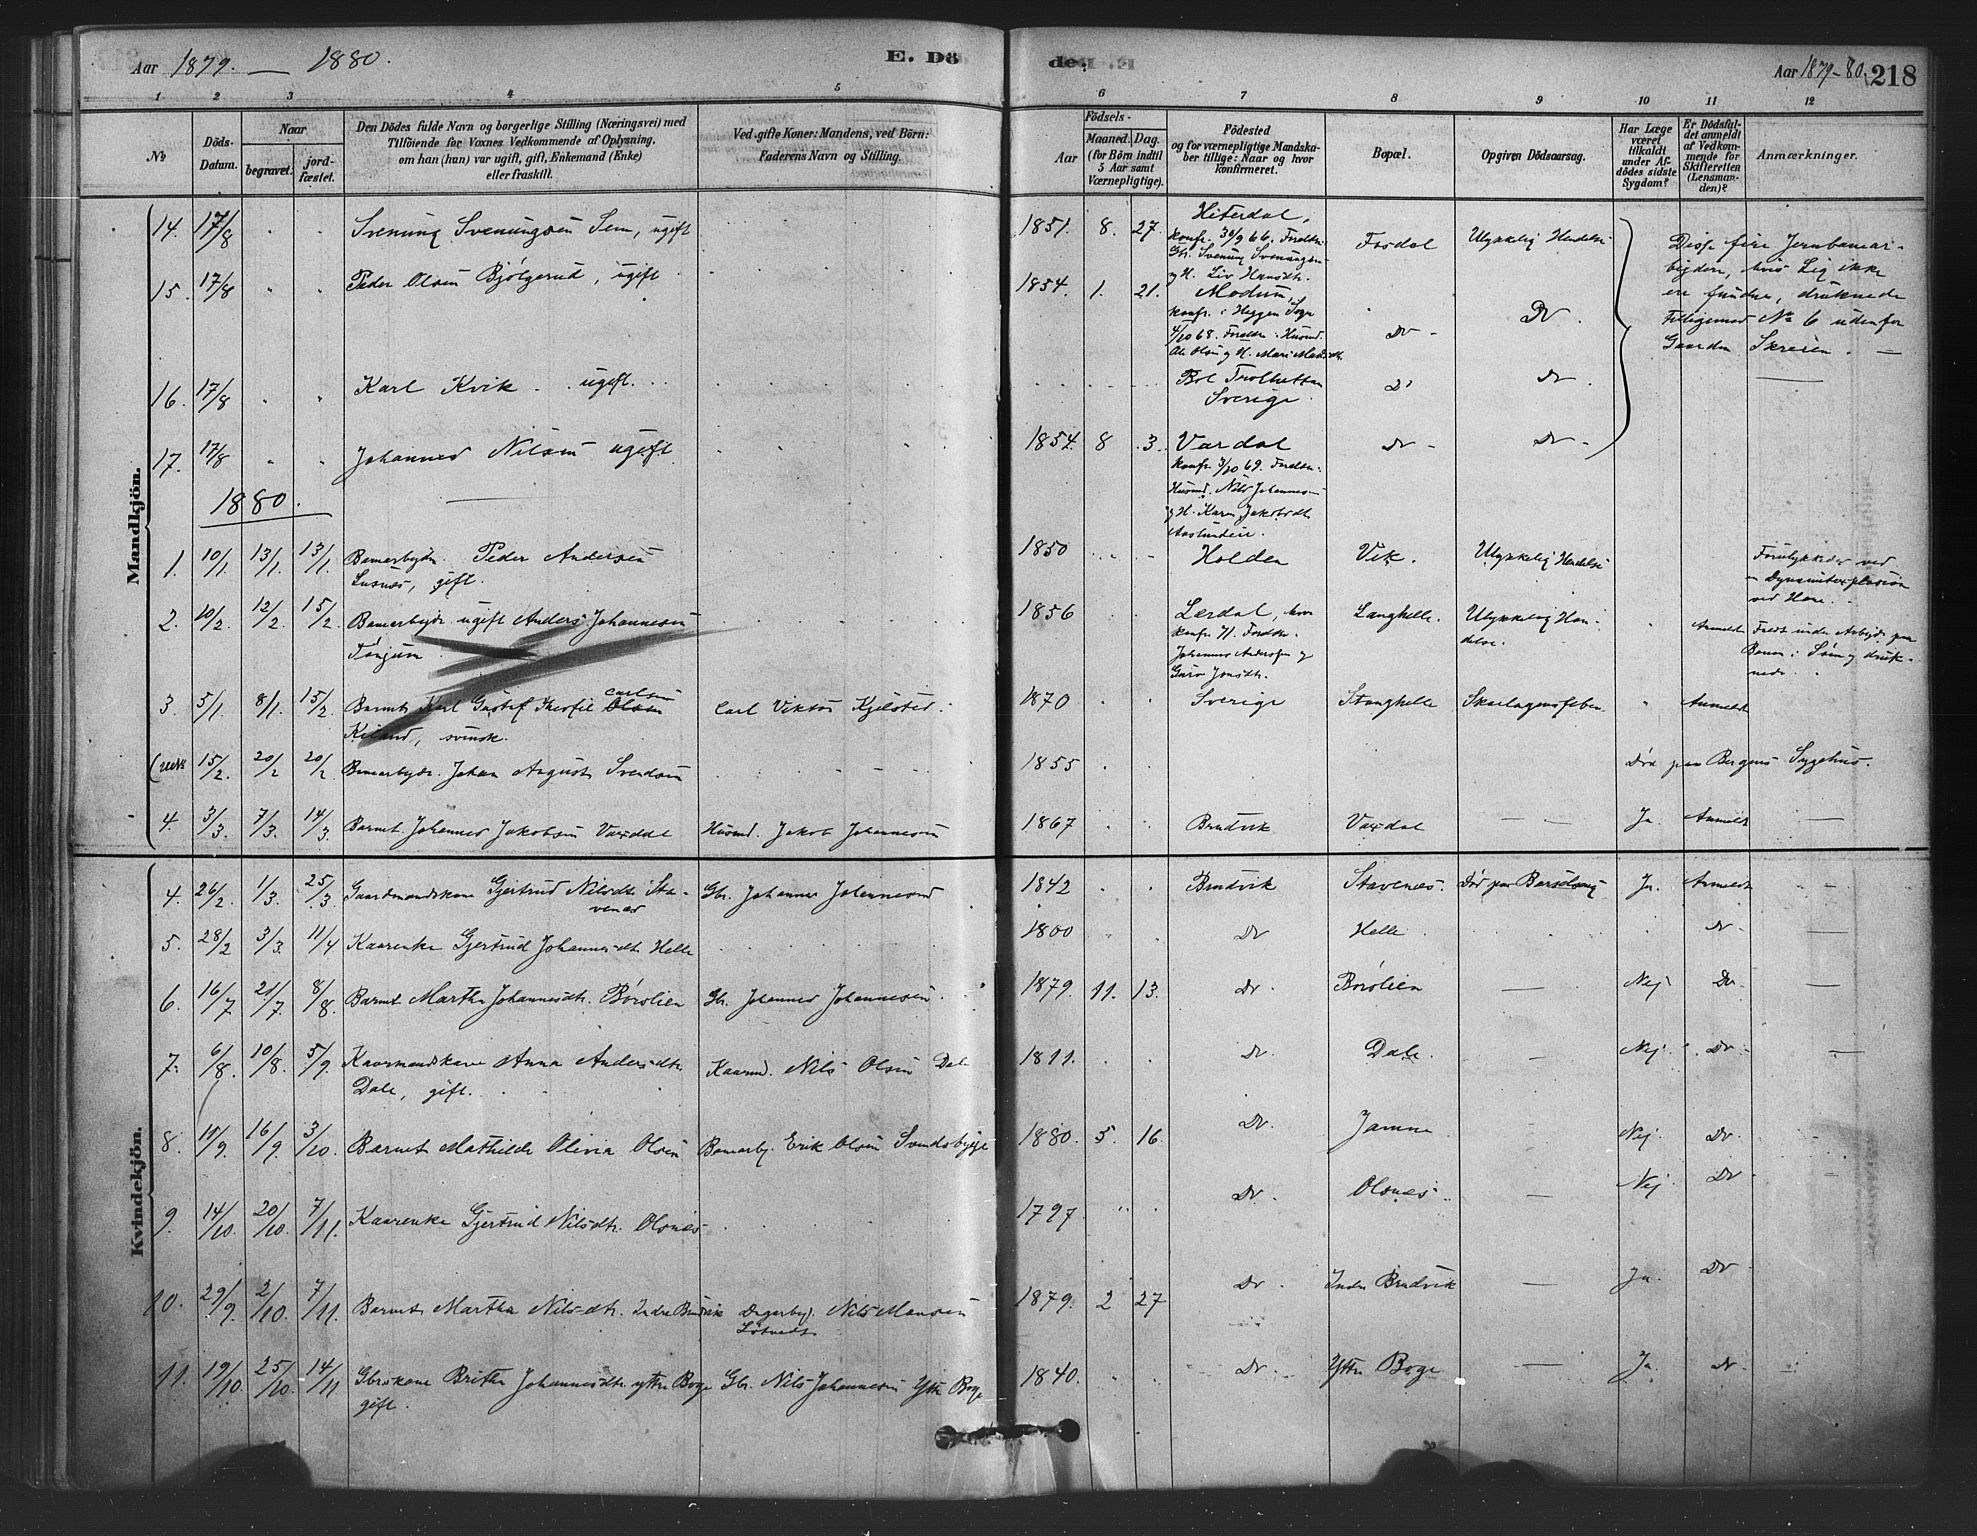 Aar 1879. — 1880.
E. Dö
de.
Aar 1879-80. 218
1 2 3 4 5 6 7 8 9 10 11 12
No
Döds-Datum.
Naar
begravet.
jord-fæstet.
Den Dödes fulde Navn og borgerlige Stilling (Næringsvei) med
Tilföiende for Voxnes Vedkommende af Oplysning,
om han (hun) var ugift, gift, Enkemand (Enke)
eller fraskilt.
Ved gifte Koner: Mandens, ved Börn:
Faderens Navn og Stilling.
Födsels-
Aar
Maaned. Dag.
(for Börn indtil
5 Aar samt
Værnepligtige).
Födested
og for værnepligtige Mandska-
ber tillige: Naar og hvor
konfirmeret.
Bopæl.
Opgiven Dödsaarsag.
Har Læge
været
tilkaldt
under Af-
dödes sidste
Sygdom?
Er Dödsfal-
det anmeldt
af Vedkom-
mende for
Skifteretten
(Lensman-
den)?
Anmærkninger.
Mandkjön.
14. 17/8 " " Svenung Svenungsen Sem, ugift 1851. 8. 27. Hiterdal, Fosdal Ulykkelig Hendelse
konfr. 30/9 66. Foreldre:
Gbr. Svenung Svenungsen
og H. Liv Hansdtr.
Disse fire Jernbanear-
beidere, hvis Lig ikke
ere fundne, druknede
tilligemed No 6 udenfor
Gaarden Skreien. —
15. 17/8 " " Peder Olsen Bjölgerud, ugift 1854. 1. 21. Modum, Do - Do.
konfr. i Heggen Sogn
4/10 68. Foreldre: Husmd.
Ole Olsen og H. Mari
16. 17/8 " " Karl Kvik. ugift. Bol Trolhettan Do Do.
Sverige.
17. 17/8 " " Johannes Nilsen ugift 1854. 8 3. Vardal Do - Do -
konfr. 3/10 69. Foreldre:
Husmd. Nils Johannesen
og H. Karen Jakobsdtr.
1880.
1. 10/1 13/1. 13/1. Banearbeider. Peder Andersen 1850 Holden Vik. Ulykkelig Hendelse Forulykkede ved
Lusnes, gift. en Dynamitexplosion
ved Horne.
2. 10/2 12/2 15/2. Banearbeider ugift Anders Johannesen 1856 Lerdal, Langhelle. Ulykkelig Hen-
delse. " Anmeldt
Tönjum konfr. 71. Foreldre
Johannes Andersen og
Guro Jonsdtr.
Banen i Söen og druk-
nede.
3. 5/1. 8/1. 15/2. Barnet Karl Gustaf Theofil Olsen Carlsen Carl Viktor Kjelsted. 1870 Sverige Stanghelle Skarlagensfeber. " Anmeldt
svensk.
15/2. 20/2 20/2. Banearbeider. Johan August Svendsen 1855 Död paa Bergens Sygehus.
4. 3/3. 7/3. 14/3. Barnet. Johannes Jakobsen Vaxdal Husmd. Jakob Johannesen 1867 Bruvik Vaxdal — Ja Anmeldt —
Kvindekjön.
4. 26/2. 1/3. 25/3. Gaardmandskone Gjertrud Nilsdtr. Sta-
venes Gbr. Johannes Johannesen 1842 Bruvik Stavenes. Död paa Barselseng Ja. Anmeldt —
5. 28/2 3/3. 11/4 Kaarenke Gjertrud Johannesdtr. Helle 1800 Do Helle Do. —
6. 16/7 21/7. 8/8. Barnet Martha Johannesdtr. Börslien Gbr. Johannes Johannesen. 1879. 11. 13. Do. Börslien — Nej Do. —
7. 6/8. 10/8. 5/9. Kaarmandskone Anna Andersdtr.
Dale, gift. Kaarmd. Nils Olsen Dale 1811. Do. Dale. — Nej. Do. —
8. 11/9. 16/9. 3/10. Barnet Mathilde Olivia Olsen Banearb. Erik Olsen Svendsbygge 1880. 5. 16. Do. Jamne Nej. Do. —
9. 14/10. 20/10. 7/11. Kaarenke Gjertrud Nilsdtr. Olsnes. 1797 Do. Olsnes. — Nej. Do
10. 29/9. 2/10. 7/11. Barnet Martha Nilsdtr. Indre Bruvik Nils Monsen
1879. 2 27 Do. Indre Bruvik — Ja. Do.
11. 19/10. 25/10. 14/11 Gbrskone Britha Johannesdtr. ytre Boge
gift. Gbr. Nils Johannesen Ytre Boge 1840. Do. Ytre Boge — Ja. Do.